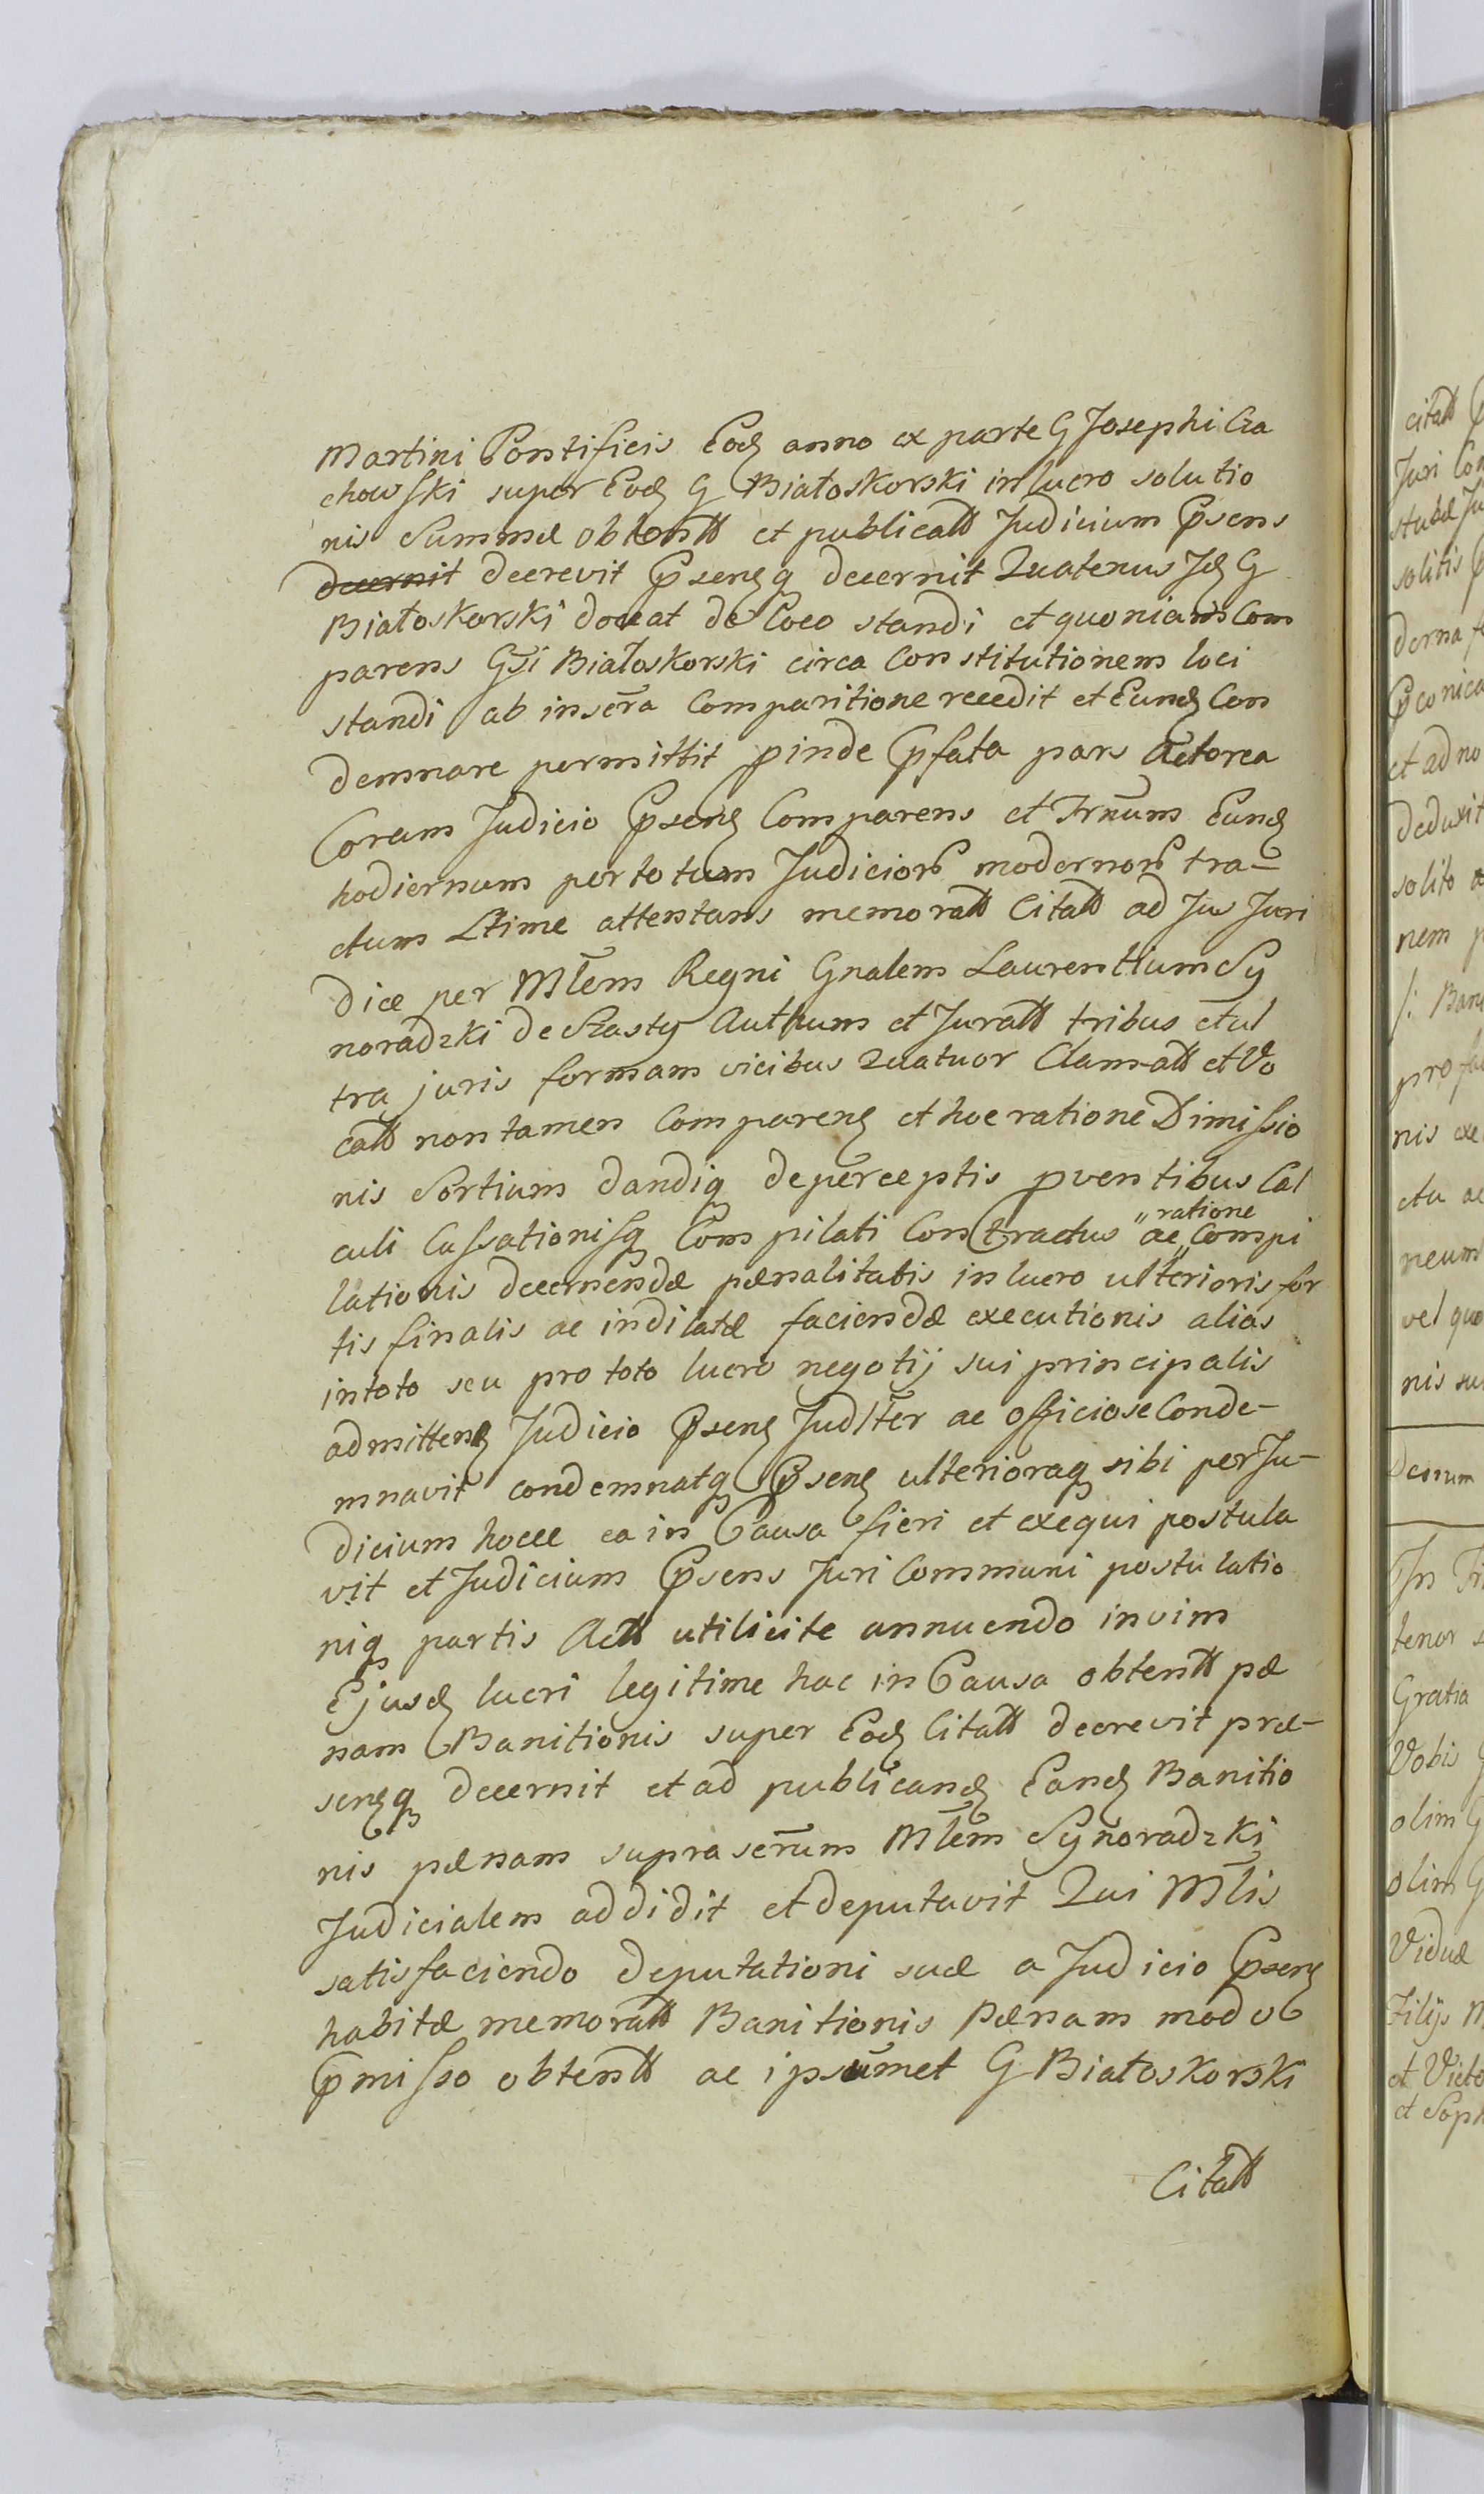 Martini Pontificis Eod anno ex parte G Josephi Cza
chowski super Eod G Białoskorski in lucro solutio
nis Summæ obtentt et publicatt Judicium Psens
decernit decrevit Psensq decernit Quatenus Id G
Białoskorski doceat de Loco standi et quoniam Com
parens Gsi Białoskorski circa Constitutionem loci
standi ab inserta Comparitione recedit et Eund Con
demnare permittit pinde Pfata pars Actorea
Coram Judicio Psend Comparens et Trnum Eund
hodiernum per totum Judicior modernor tra-
ctum Ltime attentans memoratt Citatt ad Jus Juri
dice per Mlem Regni Gnalem Laurentium Sy
noradzki de Szasty Authum et Juratt tribus et ul
tra juris formam vicibus Quatuor Clamatt et Vo
catt non tamen Comparend et hoc ratione Dimissio
nis Sortium dandiq de perceptis pventibus Cal
culi Cassationisq Compilati Contractus ac „ratione Compi
lationis decernendæ pænalitatis in lucro ulterioris for
tis finalis ac indilatæ faciendæ executionis alias
in toto seu pro toto lucro negotij sui principalis
admittend Judicio Psend Judlter ac officiose Conde-
mnavit condemnatq Psend ulterioraq sibi per Ju-
dicium hocce ea in Causa fieri et exequi postula
vit et Judicium Psens Juri Communi postulatio
niq partis Actt utilicite annuendo in vim
Ejusd lucri legitime hac in Causa obtentt pæ
nam Banitionis super Eod Citatt decrevit præ-
sensq decernit et ad publicand Eand Banitio
nis pænam supraserum Mlem Synoradzki
Judicialem addidit et deputavit Qui Mlis
satisfaciendo deputationi suæ a Judicio Psend
habitæ memoratt Banitionis Pænam modo
Pmisso obtentt ac ipsumet G Białoskorski
Citatt
citatt
Juri Com
stubæ Ju
solitis
derna
Pconica
et ad no
deduxit
solito
nem
/: Bani
pro
nis exe
ctu ac
neum
vel quo
nis su
Demum
In Tri
tenor
Gratia
Vobis
olim G
olim G
Viduæ
Filijs
et Victo
et Soph